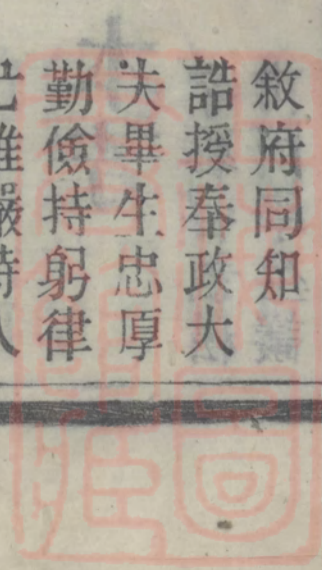 敘府同知
誥授奉政大
夫畢生忠厚
勤儉持躬律
己維嚴待人